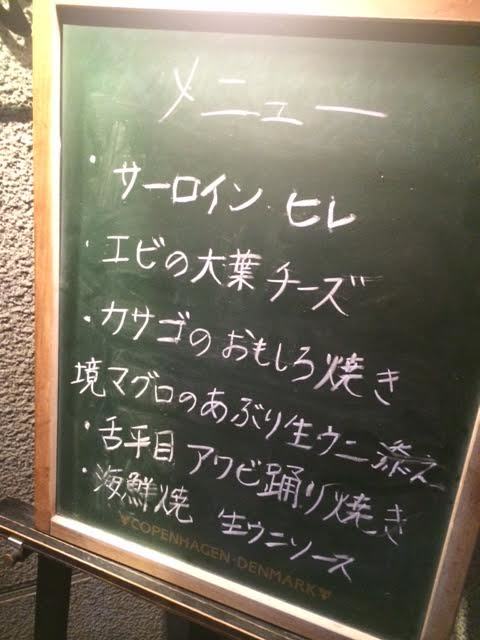 メニュー
・サーロイン ヒレ
・エビの大葉チーズ
・カサゴのおもしろ焼き
境マグロのあぶり生ウニ添え
・舌平目 アワビ踊り焼き
・海鮮焼 生ウニソース
COPENHAGEN・DENMARK